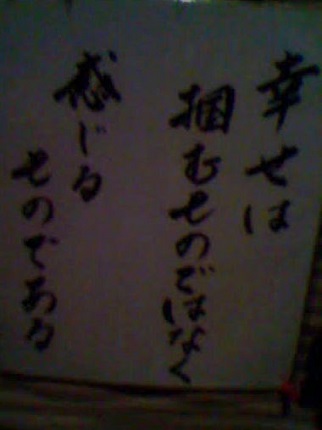 幸せは
掴むものではなく
感じる
ものである